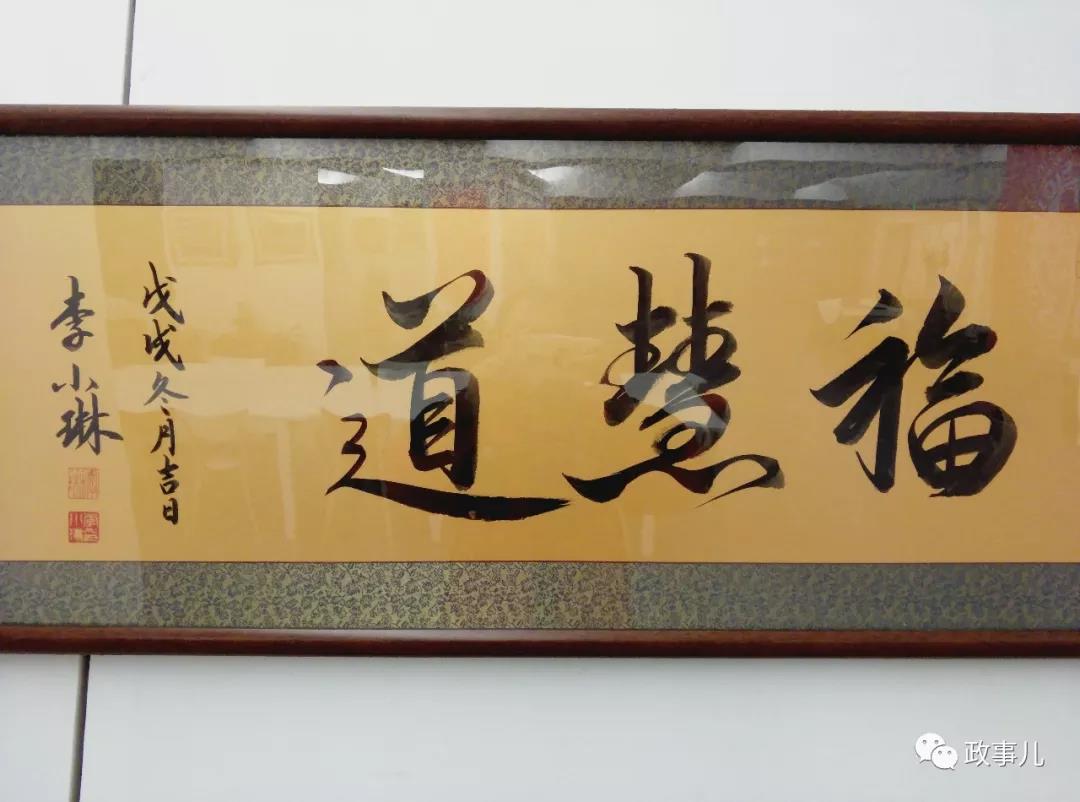 福慧道
戊戌冬月吉日
李小琳
政事儿